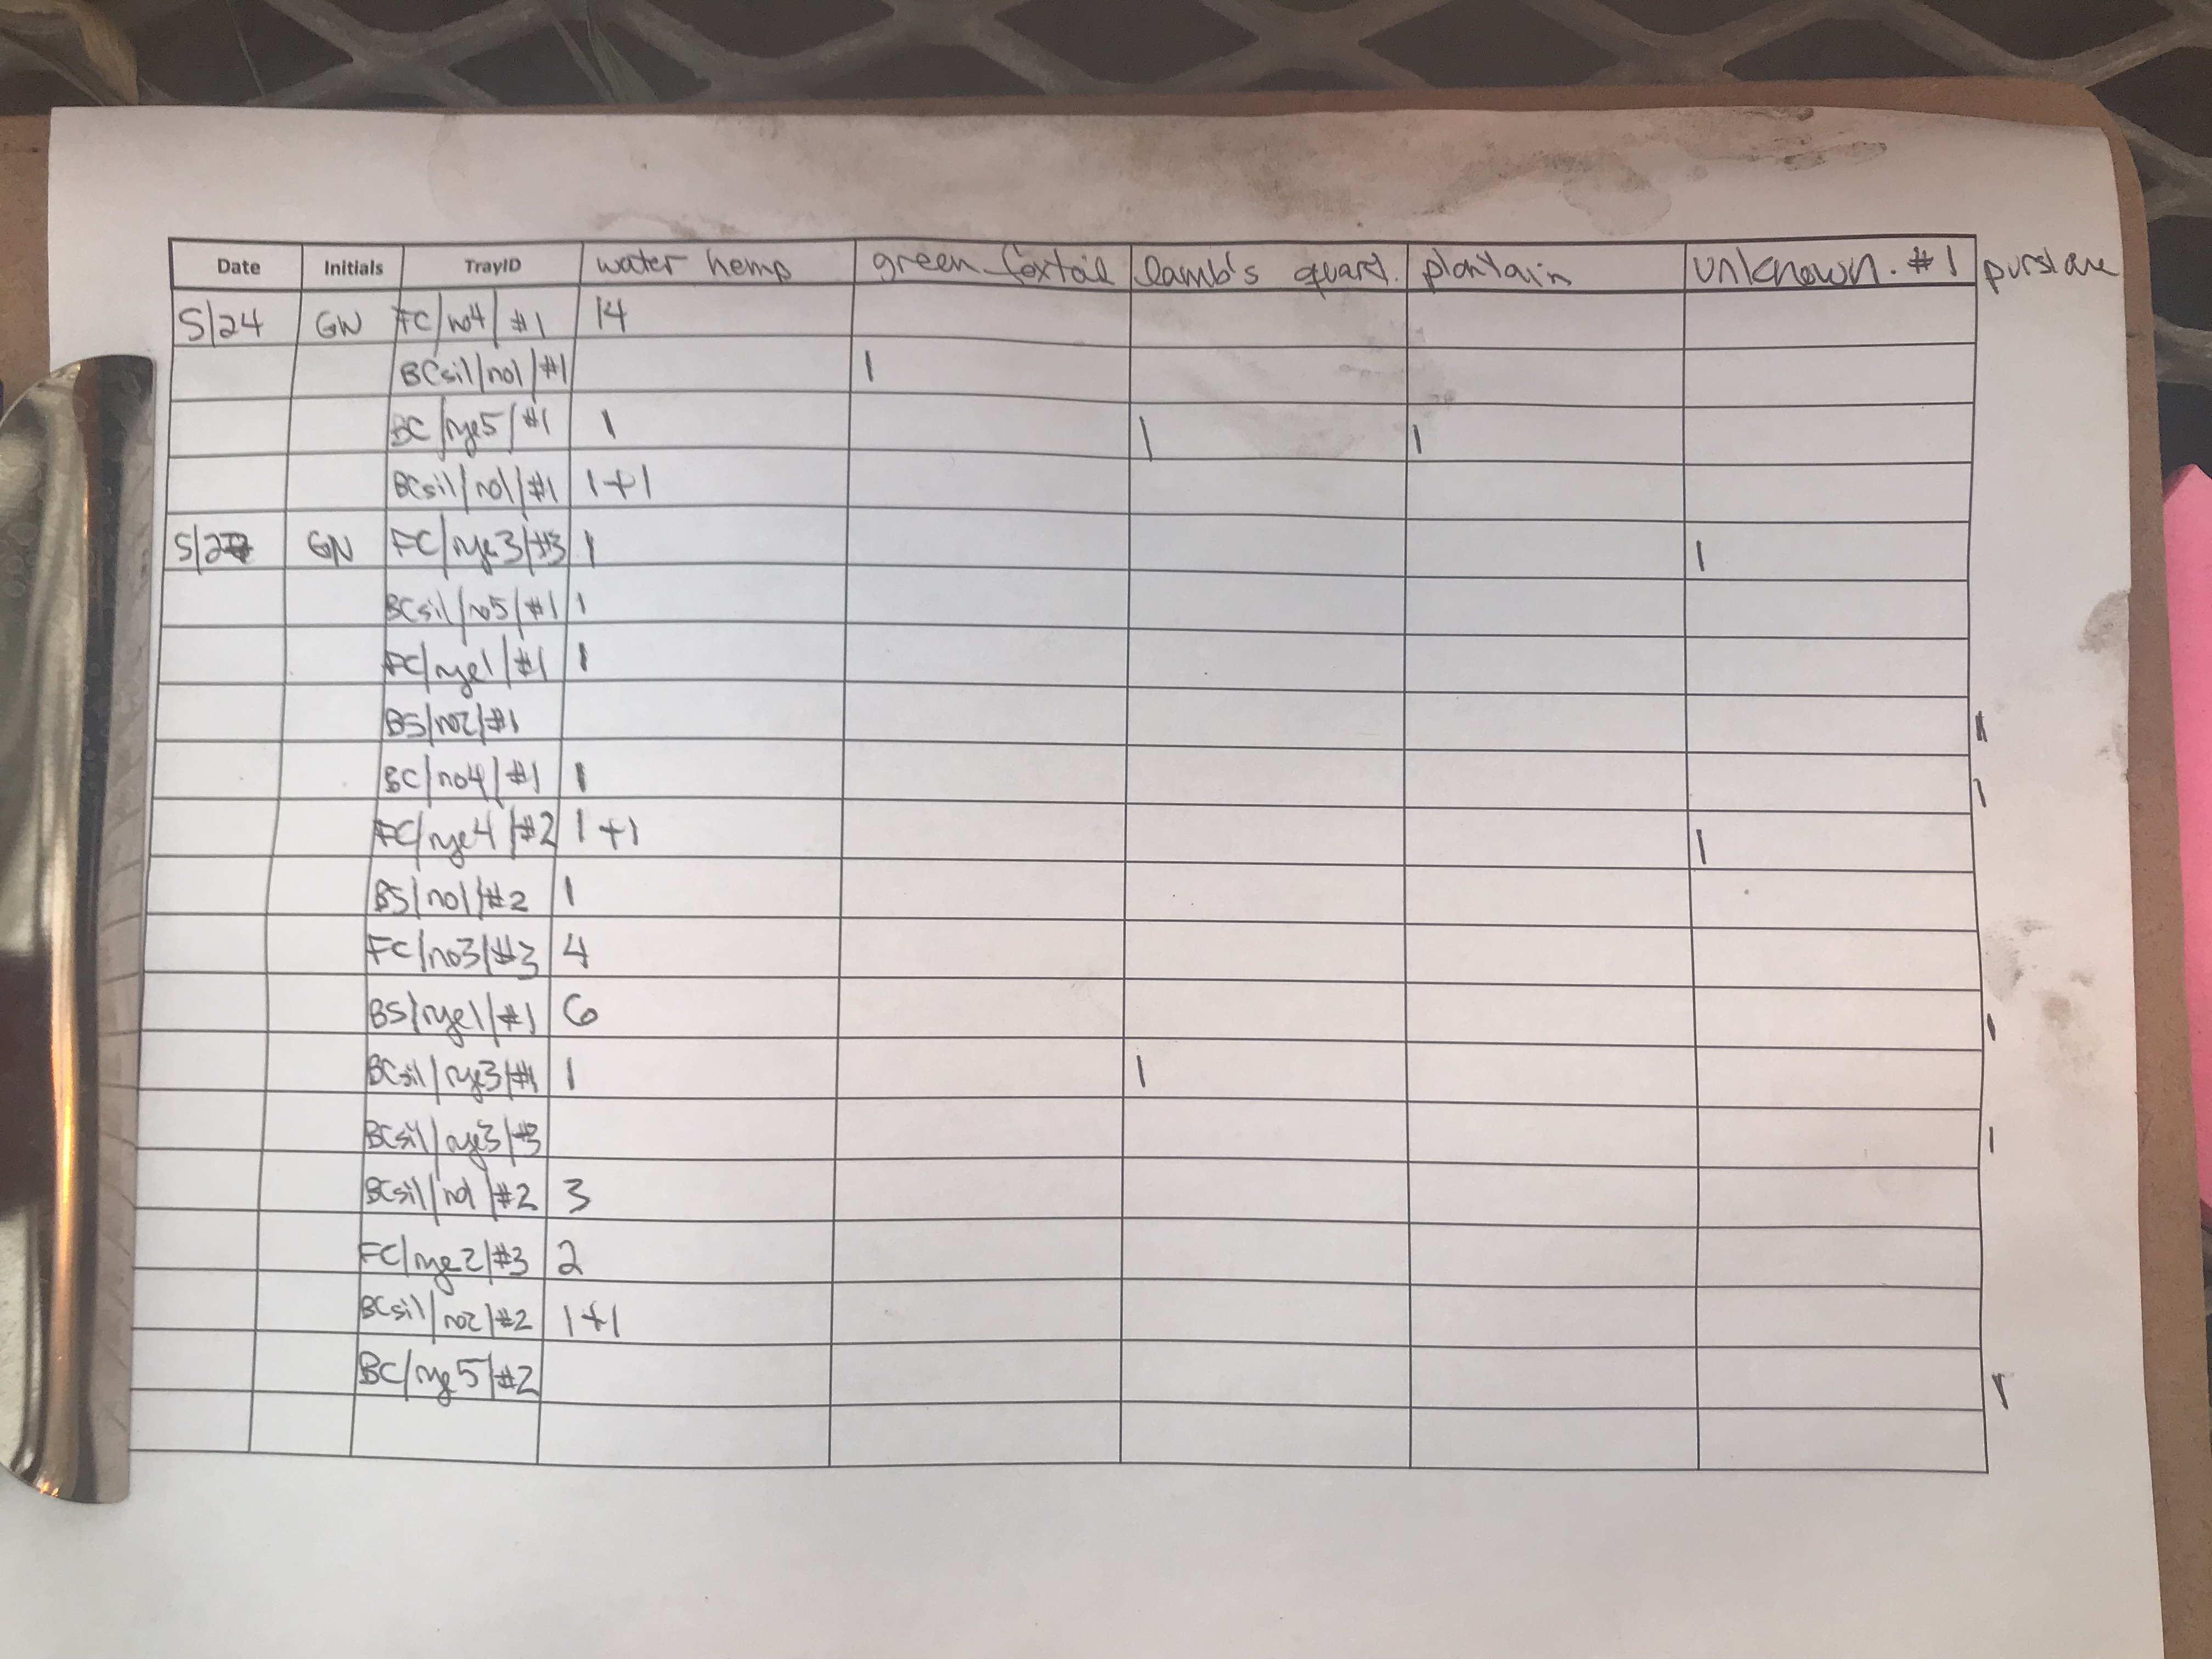 Date Initials TrayID water hemp green foxtail lamb's quart. plantain unknown. #1 purslane
5/24 GN FC/no4/#1 14
BCsil/no1/#1 1
BC/rye5/#1 1 1 1
BCsil/no1/#1 1+1
GN FC/rye3/#3 1 1
BCsil/no5/#1 1
FC/rye1/#1 1
BS/no2/#1 1
BC/no4/#1 1 1
FC/rye4/#2 1+1 1
BS/no1/#2 1
FC/no3/#3 4
BS/rye1/#1 6 1
BCsil/rye3/#1 1 1
BCsil/rye3/#3 1
BCsil/no1/#2 3
FC/rye2/#3 2
BCsil/no2/#2 1+1
BC/rye5/#2 1